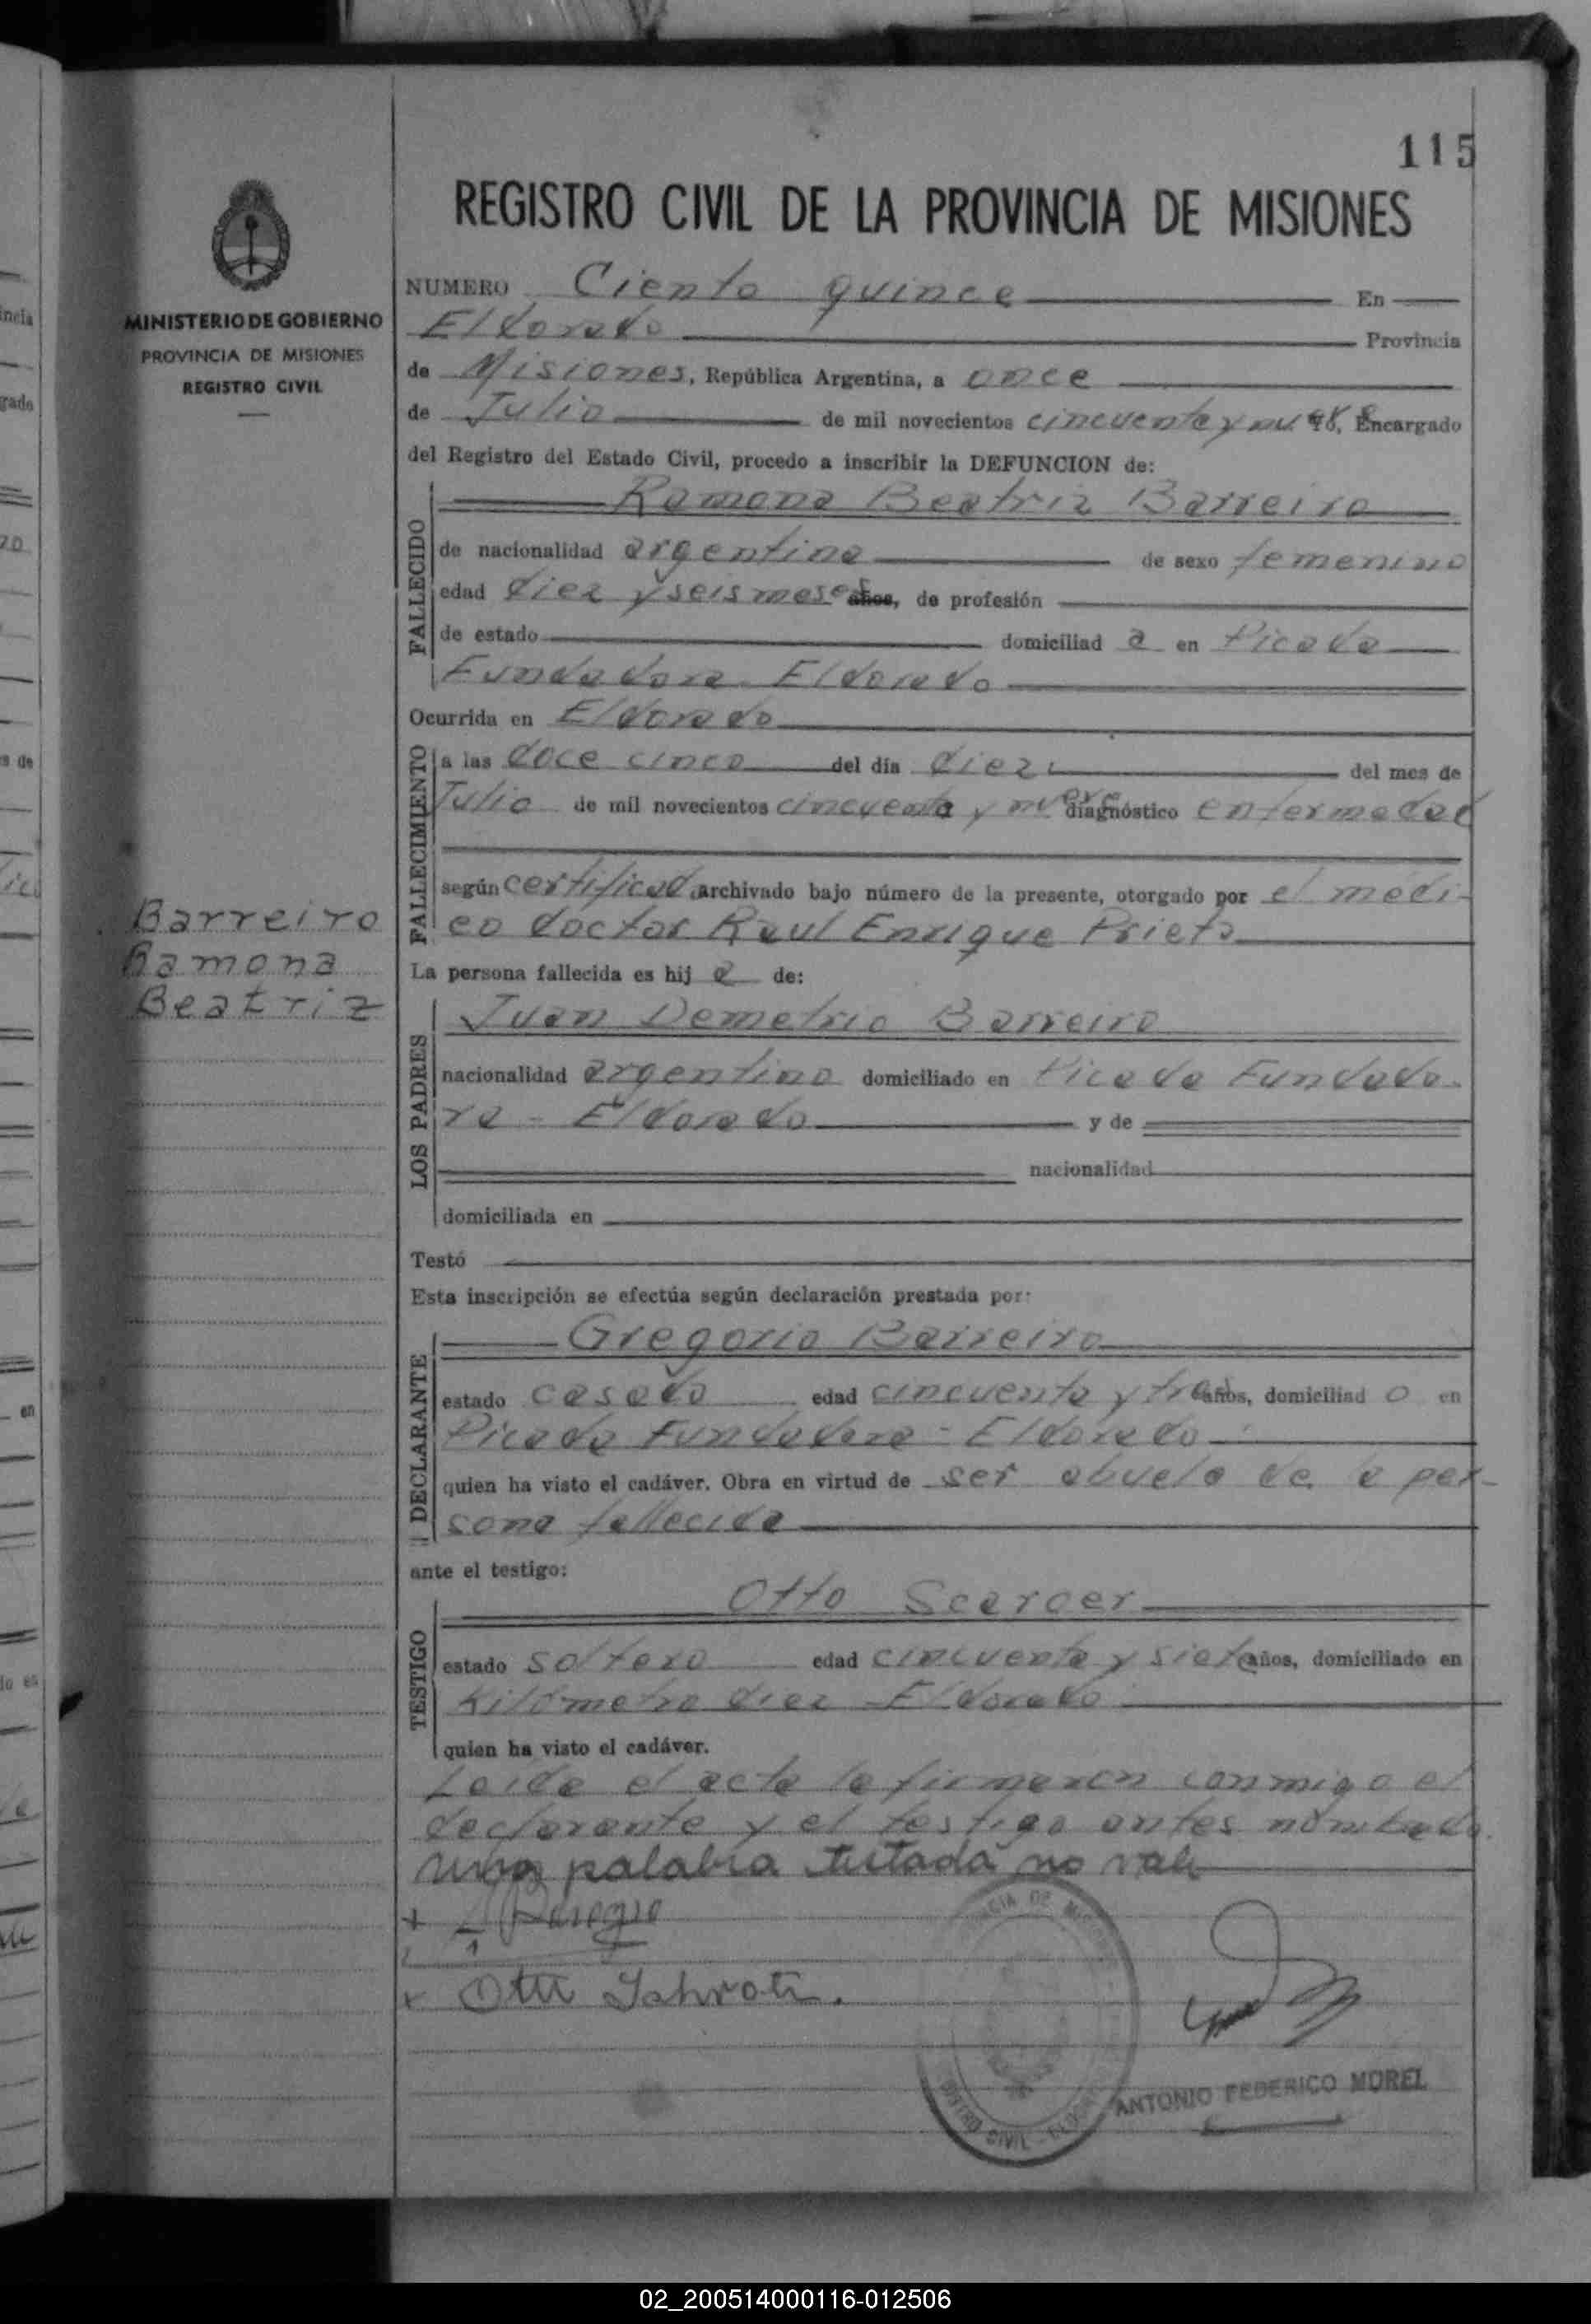 115
REGISTRO CIVIL DE LA PROVINCIA DE MISIONES
MINISTERIO DE GOBIERNO
PROVINCIA DE MISIONES
REGISTRO CIVIL
NUMERO Ciento quince En
Eldorado Provincia
de Misiones, República Argentina, a once
de Julio de mil novecientos cincuenta y nueve, Encargado
del Registro del Estado Civil, procedo a inscribir la DEFUNCION de:
FALLECIDO
Ramona Beatriz Barreiro
de nacionalidad argentina de sexo femenino
edad diez y seis meses años, de profesión
de estado domiciliad a en Picada
Fundadora - Eldorado
Ocurrida en Eldorado
FALLECIMIENTO
a las doce cinco del día diez del mes de
Julio de mil novecientos cincuenta y nueve diagnóstico enfermedad
según certificado archivado bajo número de la presente, otorgado por el médi-
co doctor Raul Enrique Prieto
Barreiro
Ramona
Beatriz
La persona fallecida es hij a de:
LOS PADRES
Juan Demetrio Barreiro
nacionalidad argentino domiciliado en Picada Fundado-
ra - Eldorado y de
nacionalidad
domiciliada en
Testó
Esta inscripción se efectúa según declaración prestada por:
DECLARANTE
Gregorio Barreiro
estado casado edad cincuenta y tres años, domiciliad o en
Picada Fundadora - Eldorado
quien ha visto el cadáver. Obra en virtud de ser abuelo de la per-
sona fallecida
ante el testigo:
TESTIGO
Otto
estado soltero edad cincuenta y siete años, domiciliado en
Kilómetro diez - Eldorado
quien ha visto el cadáver.
Leída el acta la firmaron conmigo el
declarante y el testigo antes nombrado.
una palabra testada no vale
ANTONIO FEDERICO MOREL
02_200514000116-012506